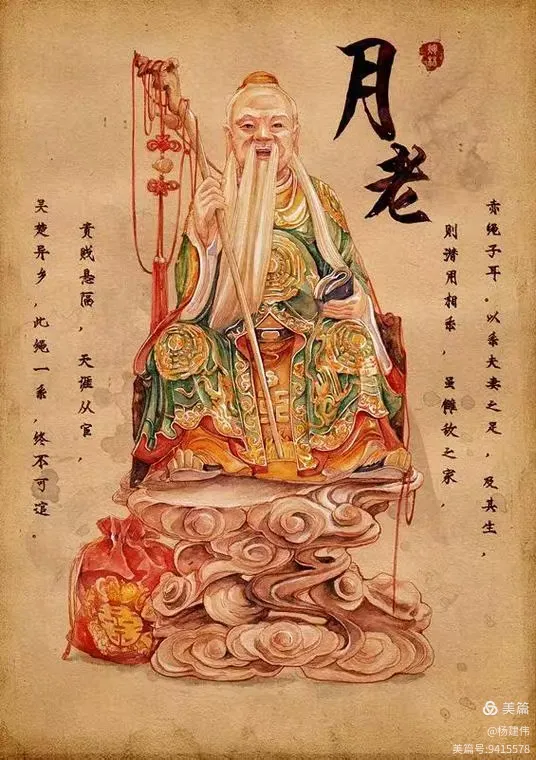 月老
赤绳子耳。以系夫妻之足，及其生，
则潜用相系，虽雠敌之家，
贵贱悬隔，天涯从宦，
吴楚异乡，此绳一系，终不可逭。
美篇
@杨建伟
美篇号:9415578